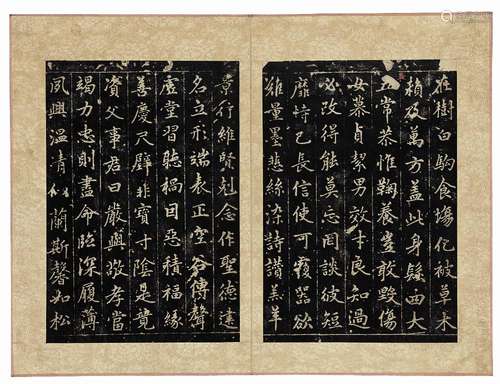 在樹白駒食場化被草木
賴及萬方蓋此身髮四大
五常恭惟鞠養豈敢毀傷
女慕貞絜男效才良知過
必改得能莫忘罔談彼短
靡恃己長信使可覆器欲
難量墨悲絲染詩讚羔羊
景行維賢剋念作聖德建
名立形端表正空谷傳聲
虛堂習聽禍因惡積福緣
善慶尺璧非寶寸陰是競
資父事君曰嚴與敬孝當
竭力忠則盡命臨深履薄
夙興溫凊似蘭斯馨如松